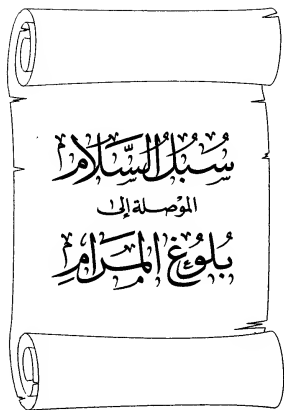 سُبُلُ السَّلَامِ
الموصلة إلى
بُلُوغِ المَرَامِ